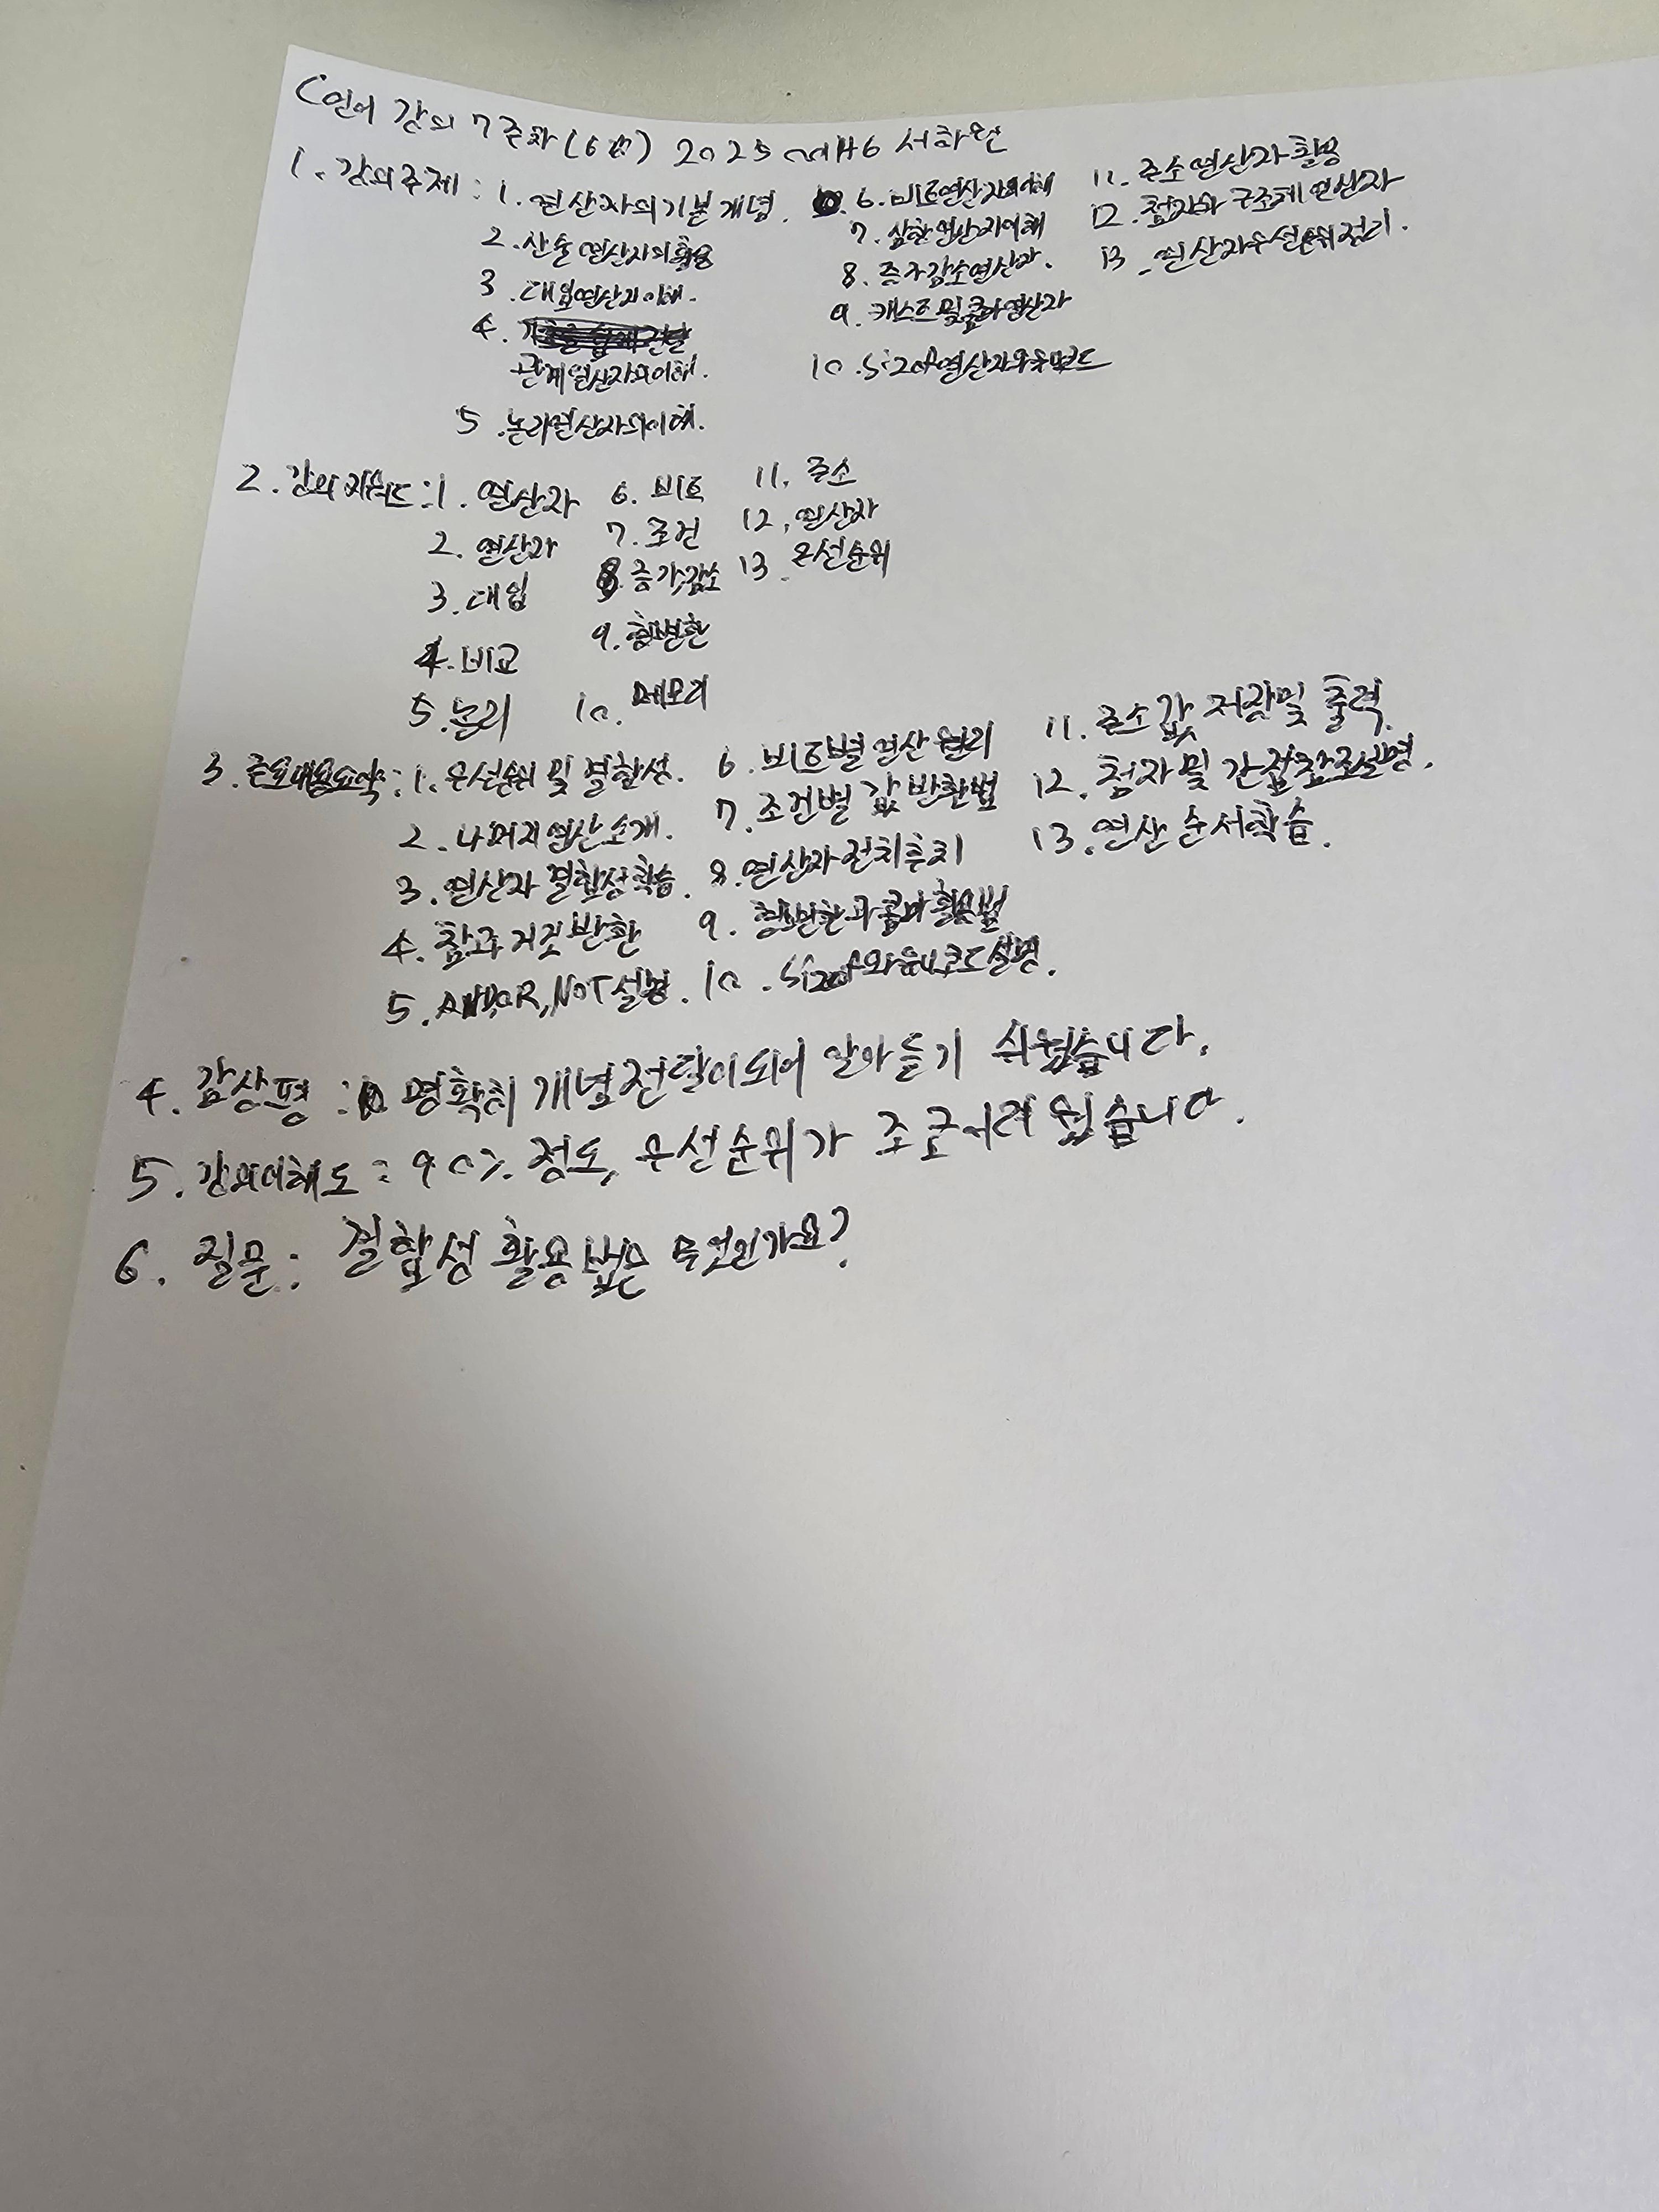 C언어 강의 7주차(6 ) 2025 서하원
1. 강의주제 : 1. 연산자의기본개념. 6. 비트연산자의이해 11. 주소연산자활용
2. 산술연산자의활용 7. 삼항연산자이해 12. 첨자와 구조체연산자
3. 대입연산자이해. 8. 증가감소연산자. 13. 연산자우선순위정리.
4. 9. 캐스트및콤마연산자
관계연산자의이해. 10. Sizeof연산자와유니코드
5. 논리연산자의이해.
2. 강의키워드 : 1. 연산자 6. 비트 11. 주소
2. 연산자 7. 조건 12. 연산자
3. 대입 8. 증가,감소 13. 우선순위
4. 비교 9. 형변환
5. 논리 10. 메모리
3. 주요내용요약 : 1. 우선순위 및 결합성. 6. 비트별 연산 원리 11. 주소값 저장및 출력.
2. 나머지연산소개. 7. 조건별 값 반환법 12. 첨자 및 간접참조설명.
3. 연산자 결합성학습. 8. 연산자전치후치 13. 연산 순서학습.
4. 참과 거짓 반환 9. 형변환과콤마활용법
5. AND,OR,NOT설명. 10. Sizeof와유니코드설명.
4. 감상평 : 명확히 개념전달이되어 알아듣기 쉬웠습니다.
5. 강의이해도 : 90% 정도, 우선순위가 조금어려웠습니다.
6. 질문 : 결합성 활용법은 무엇인가요?